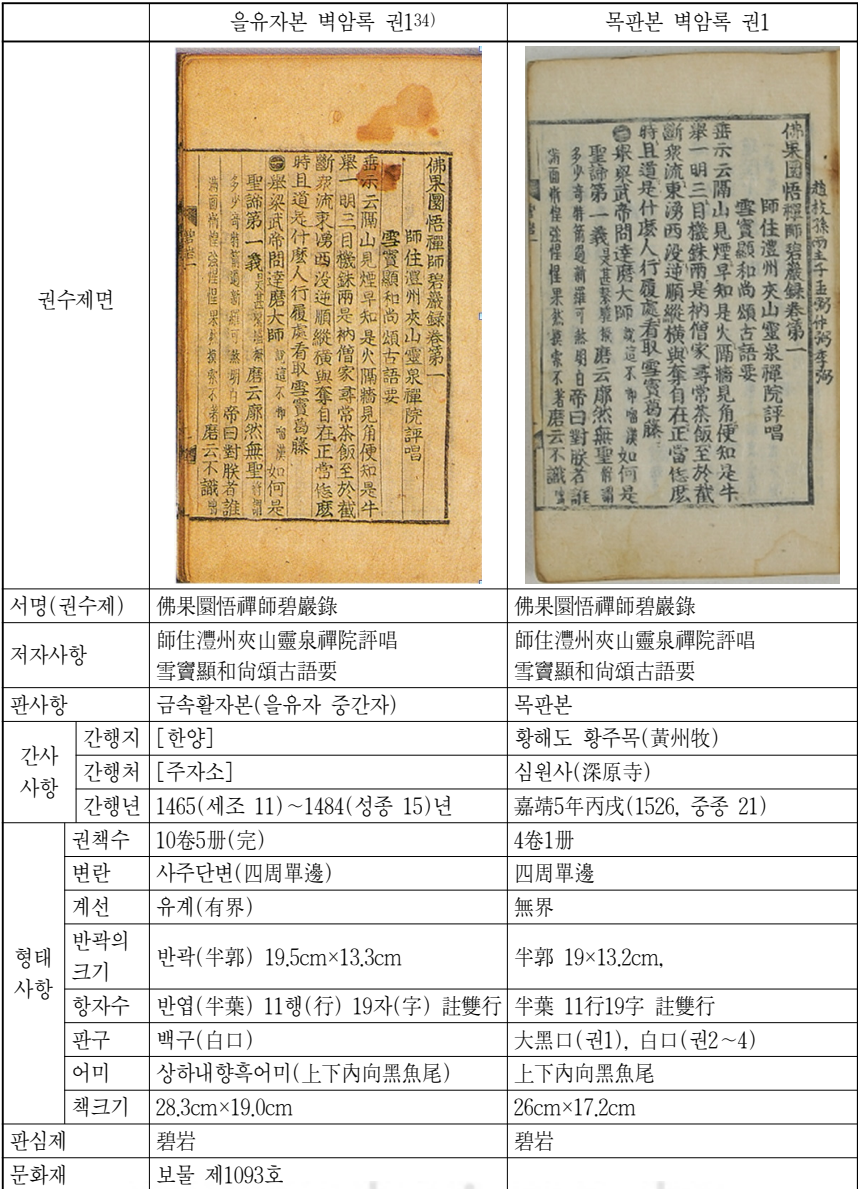 을유자본 벽암록 권134)
목판본 벽암록 권1
권수제면
佛果圜悟禪師碧巖録卷第一
師住澧州夾山靈泉禪院評唱
雪竇顯和尚頌古語要
垂示云隔山見煙早知是火隔牆見角便知是牛
舉一明三目機銖兩是衲僧家尋常茶飯至於截
斷衆流東湧西没逆順縱橫與奪自在正當恁麽
時且道是什麽人行履處看取雪竇葛藤
舉梁武帝問達磨大師 說這不喞 漢 如何是
聖諦第一義 磨云廓然無聖 將謂
多少奇特箭過新羅可煞明白 帝曰對朕者誰
滿面慚惶強惺惺果然摸索不著 磨云不識
趙枝孫兩主子孟弼仲弼季弼
佛果圜悟禪師碧巖録卷第一
師住澧州夾山靈泉禪院評唱
雪竇顯和尚頌古語要
垂示云隔山見煙早知是火隔牆見角便知是牛
舉一明三目機銖兩是衲僧家尋常茶飯至於截
斷衆流東湧西没逆順縱橫與奪自在正當恁麽
時且道是什麽人行履處看取雪竇葛藤
舉梁武帝問達磨大師 說這不喞 漢 如何是
聖諦第一義 磨云廓然無聖 將謂
多少奇特箭過新羅可煞明白 帝曰對朕者誰
滿面慚惶強惺惺果然摸索不著 磨云不識
서명(권수제)
佛果圜悟禪師碧巖錄
佛果圜悟禪師碧巖錄
저자사항
師住澧州夾山靈泉禪院評唱
雪竇顯和尙頌古語要
師住澧州夾山靈泉禪院評唱
雪竇顯和尙頌古語要
판사항
금속활자본(을유자 중간자)
목판본
간사
사항
간행지
[한양]
황해도 황주목(黃州牧)
간행처
[주자소]
심원사(深原寺)
간행년
1465(세조 11)~1484(성종 15)년
嘉靖5年丙戌(1526, 중종 21)
형태
사항
권책수
10卷5册(完)
4卷1册
변란
사주단변(四周單邊)
四周單邊
계선
유계(有界)
無界
반곽의
크기
반곽(半郭) 19.5cm×13.3cm
半郭 19×13.2cm,
항자수
반엽(半葉) 11행(行) 19자(字) 註雙行
半葉 11行19字 註雙行
판구
백구(白口)
大黑口(권1), 白口(권2~4)
어미
상하내향흑어미(上下內向黑魚尾)
上下內向黑魚尾
책크기
28.3cm×19.0cm
26cm×17.2cm
판심제
碧岩
碧岩
문화재
보물 제1093호